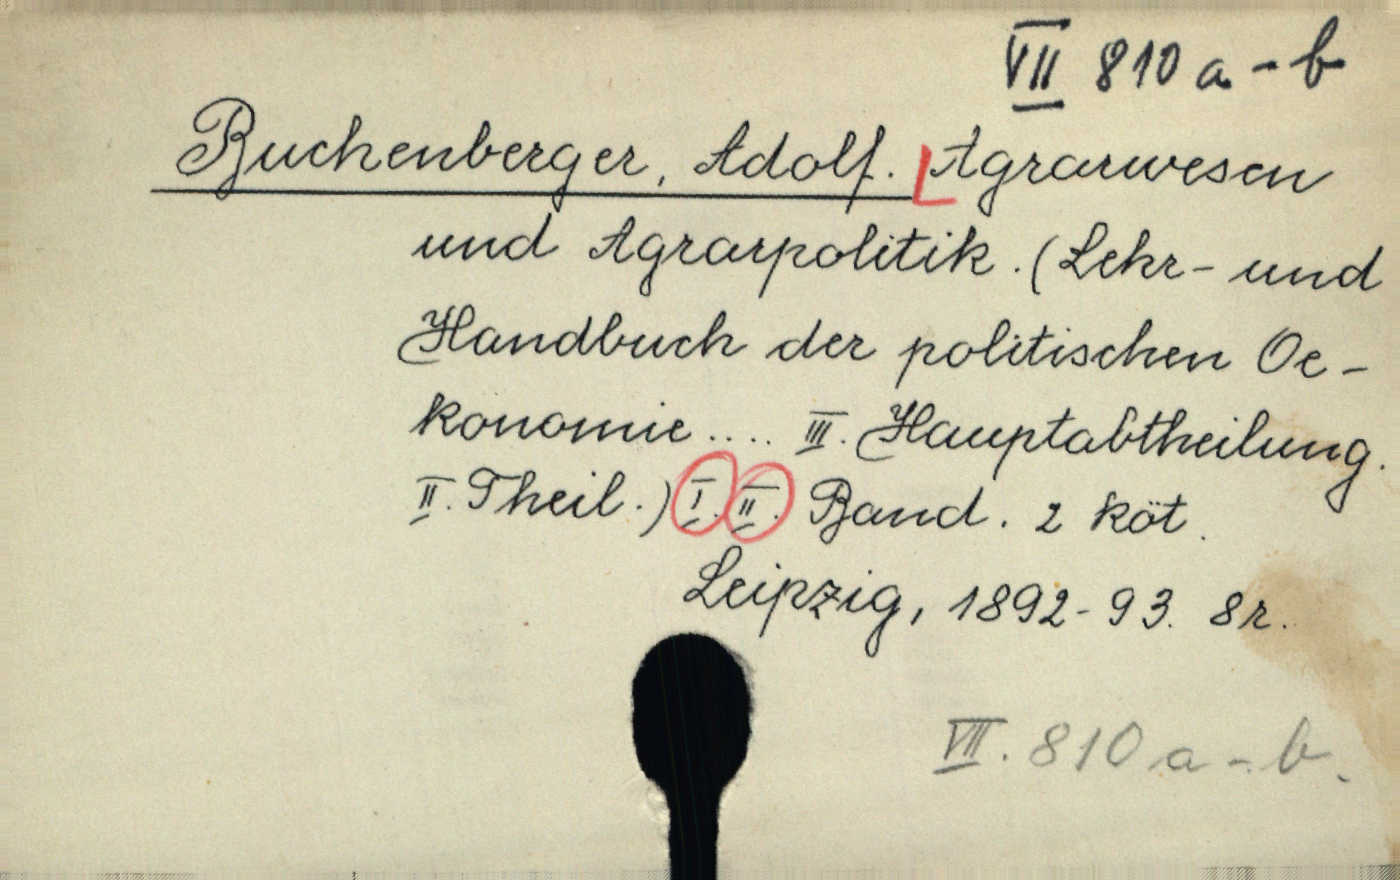 VII 810 a-b
Buchenberger, Adolf. Agrarwesen
und Agrarpolitik. (Lehr- und
Handbuch der politischen Oe-
konomie.... III. Hauptabtheilung.
II. Theil.) I. II. Band. 2 köt.
Leipzig, 1892-93. 8r.
VII. 810 a-b.